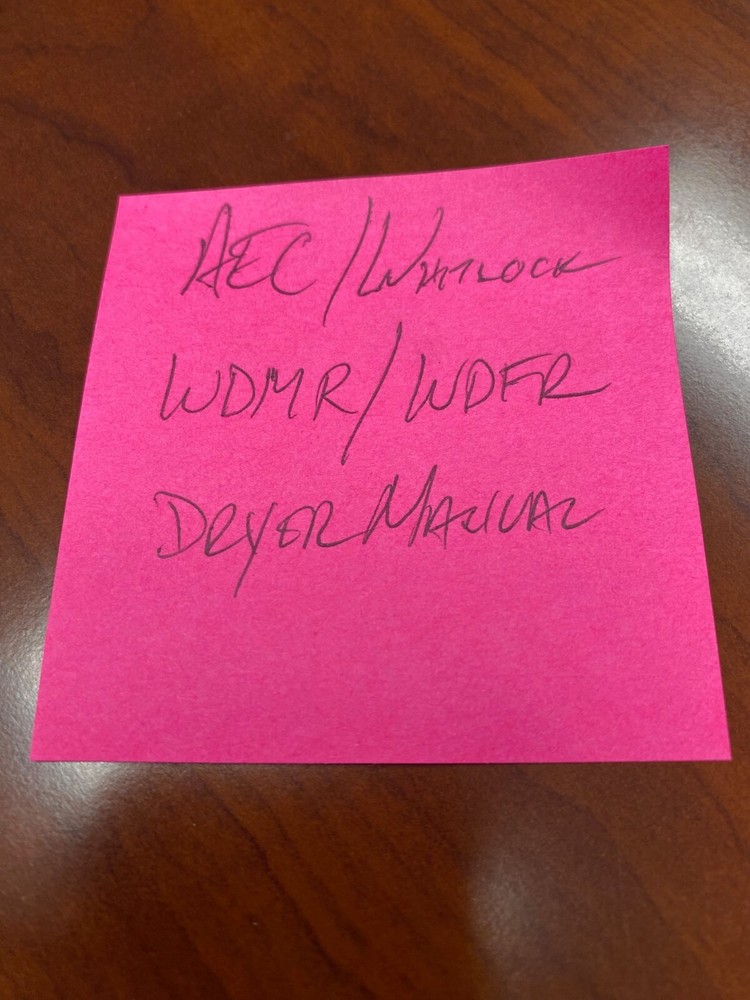 AEC/WHITLOCK
WDMR/WDFR
DRYER MANUAL